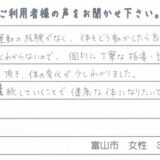 ご利用者様の声をお聞かせ下さい。
運動の経験がなく、体をどう動かしたら良
くわからないので、個別に丁寧な指導・
頂き、体の変化が少しわかりました。
続していくことで健康な体になりたいで
富山市 女性 3